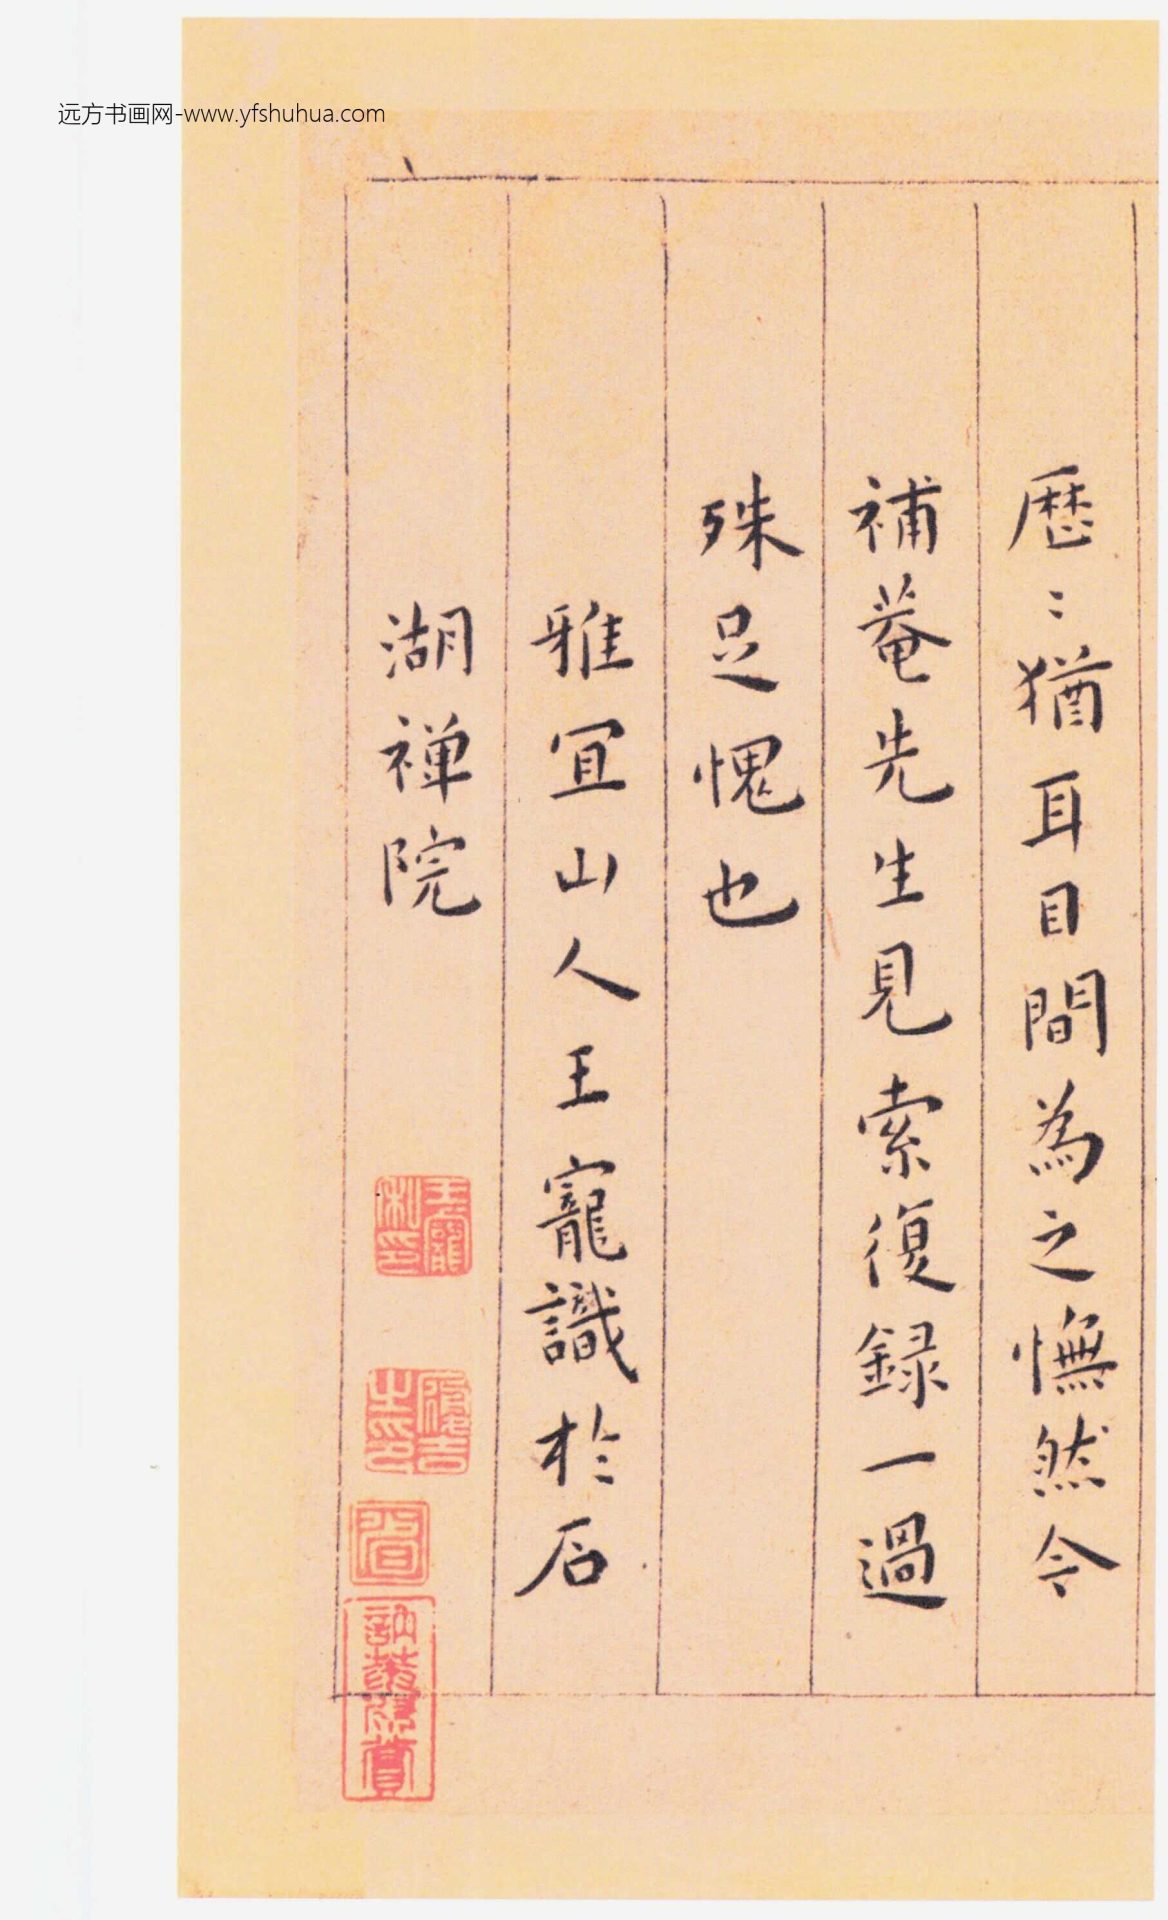 远方书画网-www.yfshuhua.com
歷〻猶耳目間為之憮然今
補菴先生見索復録一過
殊足愧也
雅宜山人王寵識於石
湖禅院
王寵私印
履吉之印